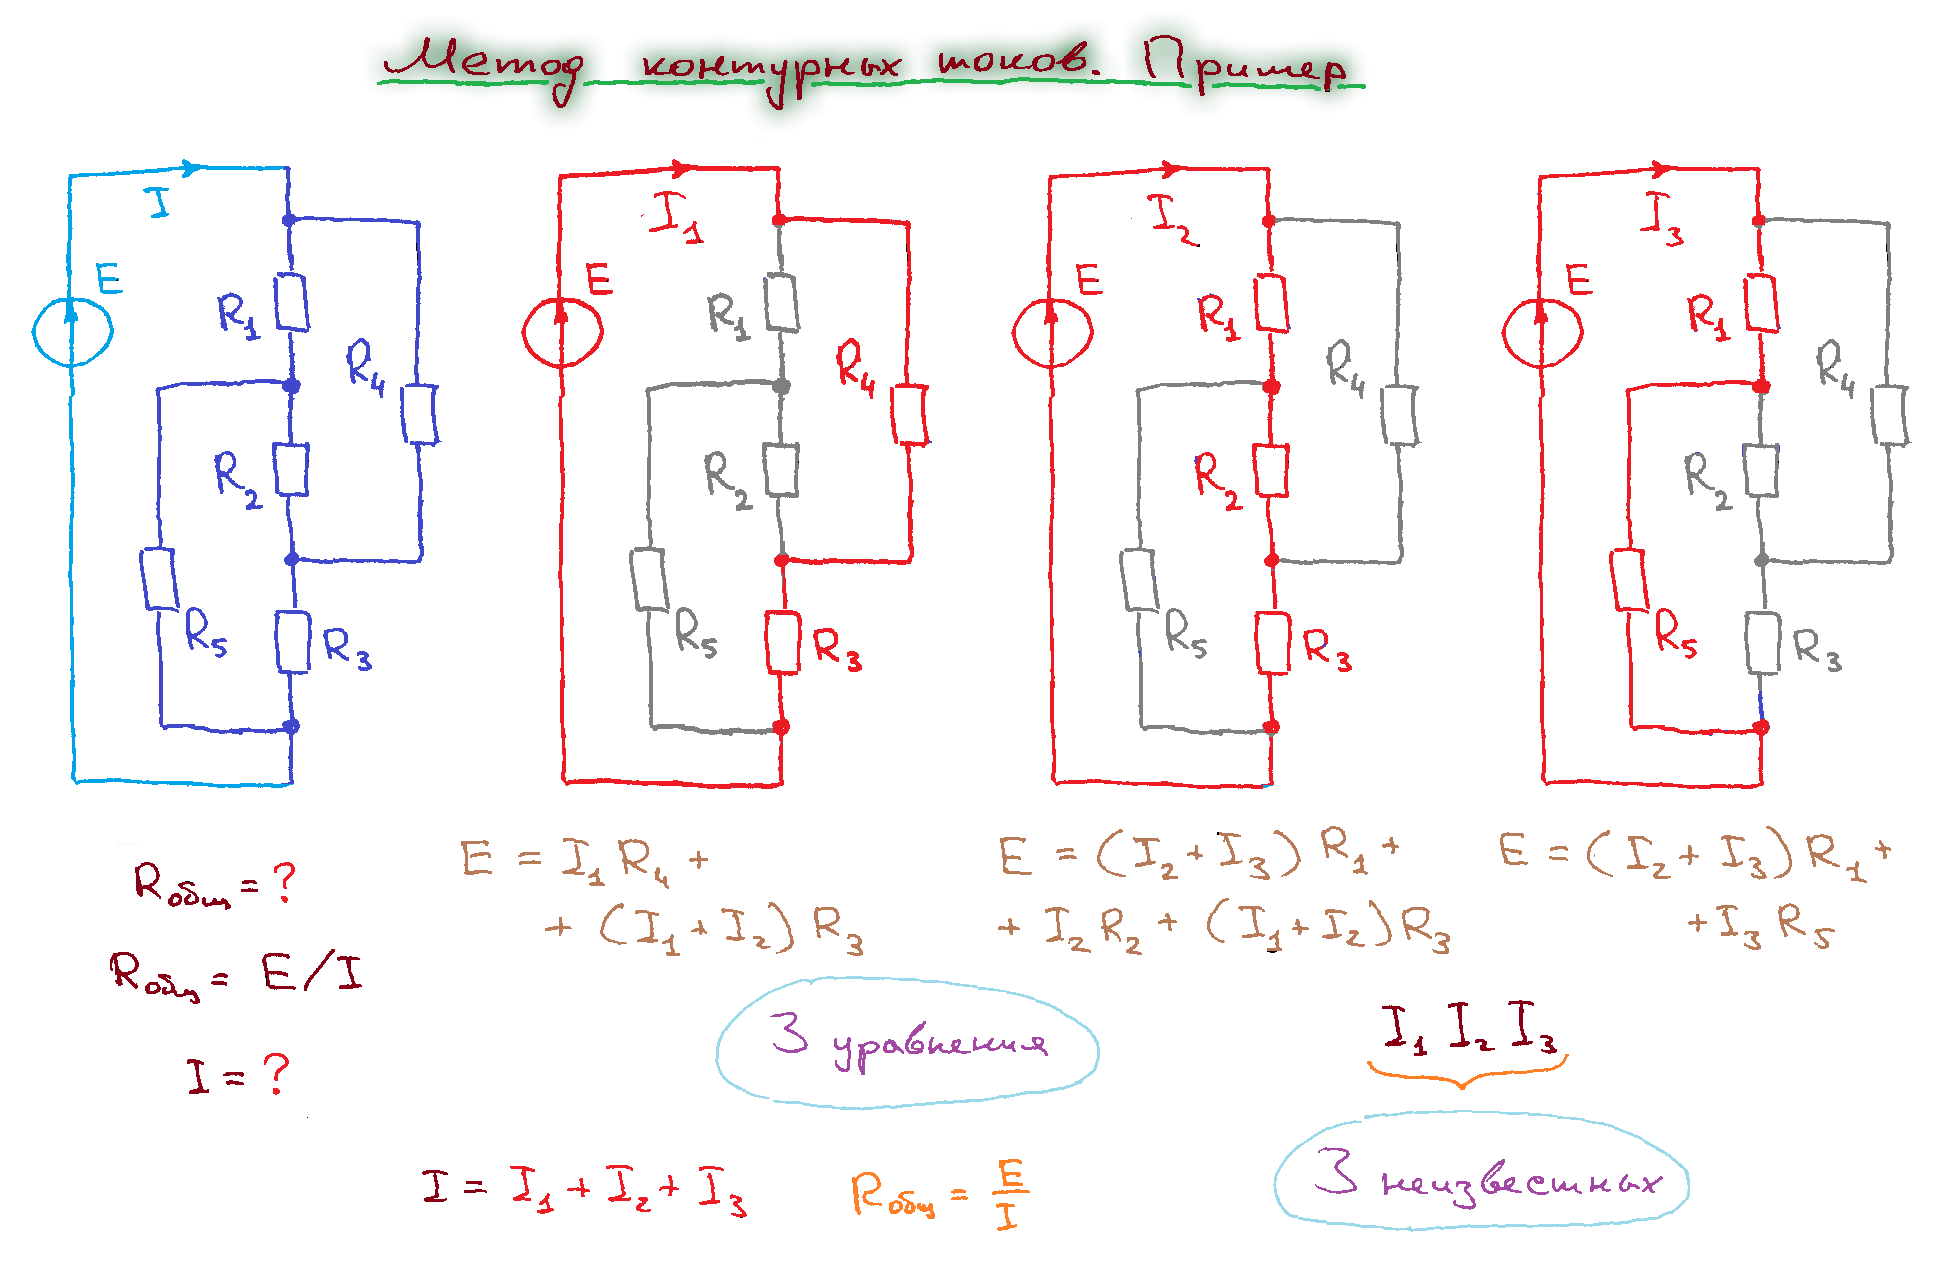 Метод контурных токов. Пример
I
E
R1
R4
R2
R5
R3
I1
E
R1
R4
R2
R5
R3
I2
E
R1
R4
R2
R5
R3
I3
E
R1
R4
R2
R5
R3
Rобщ = ?
Rобщ = E/I
I = ?
E = I1 R4 +
+ (I1 + I2) R3
E = (I2 + I3) R1 +
+ I2 R2 + (I1 + I2) R3
E = (I2 + I3) R1 +
+ I3 R5
3 уравнения
I1 I2 I3
3 неизвестных
I = I1 + I2 + I3
Rобщ = E/I